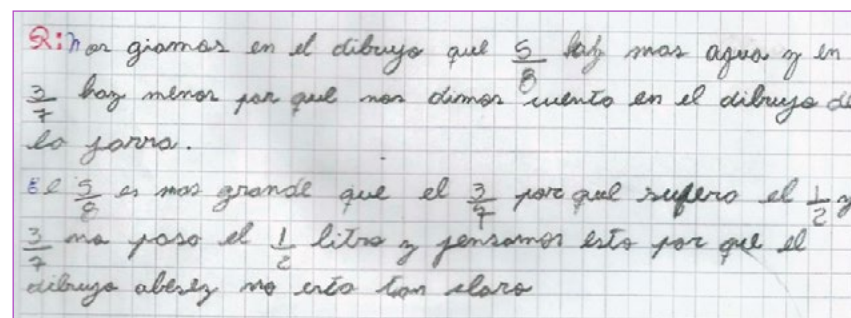 R: nos giamos en el dibujo que 5/8 hay mas agua y en
3/7 hay menos por que nos dimos cuenta en el dibujo de
la jarra.
El 5/8 es mas grande que el 3/7 por que supera el 1/2 y
3/7 no paso el 1/2 litro y pensamos esto por que el
dibujo abesez no esta tan claro